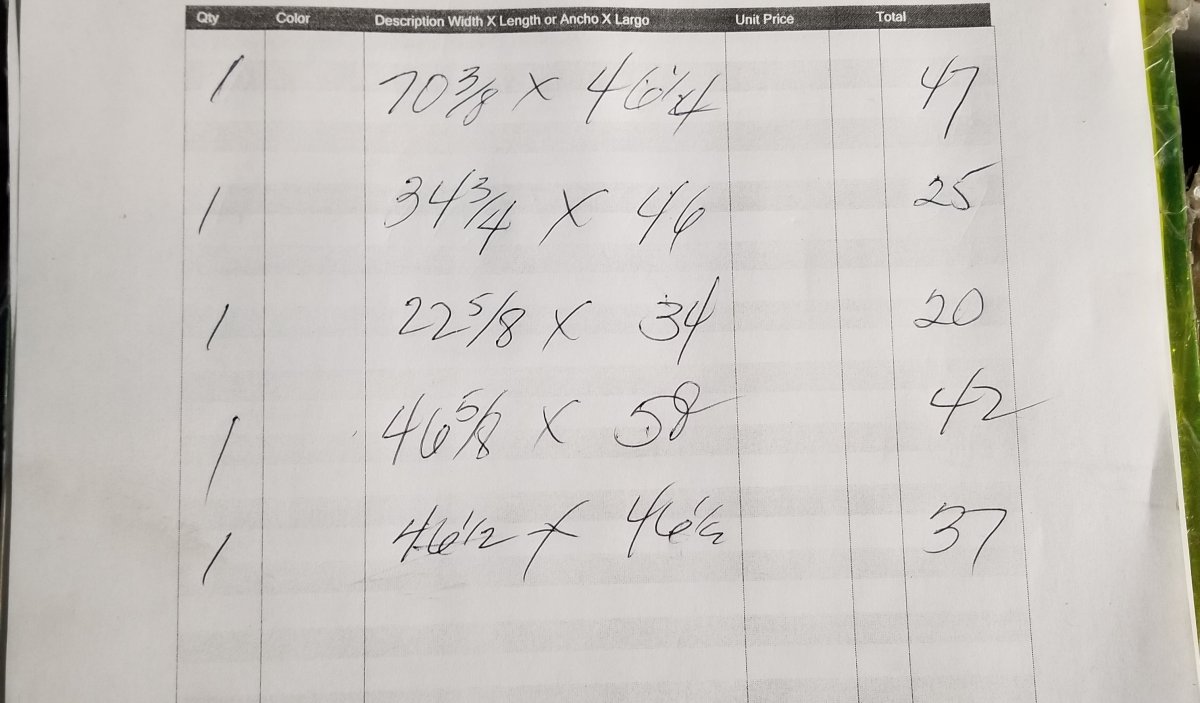 Qty Color Description Width X Length or Ancho X Largo Unit Price Total
1 70 3/8 X 46 1/4 47
1 34 3/4 X 46 25
1 22 5/8 X 34 20
1 46 5/8 X 58 42
1 46 1/2 X 46 1/2 37